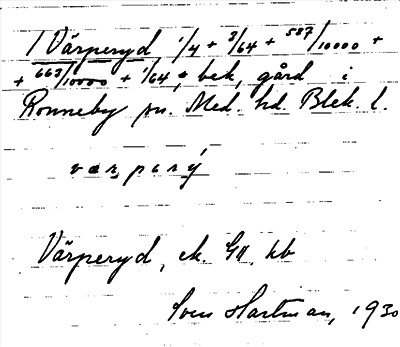 1 Värperyd 1/4 + 3/64 + 587/10000 +
+ 663/10000 + 1/64, bek, gård i
Ronneby sn. Med. hd. Blek. l.
værperý
Värperyd, ek. GII kb
Sven Hartman, 1930